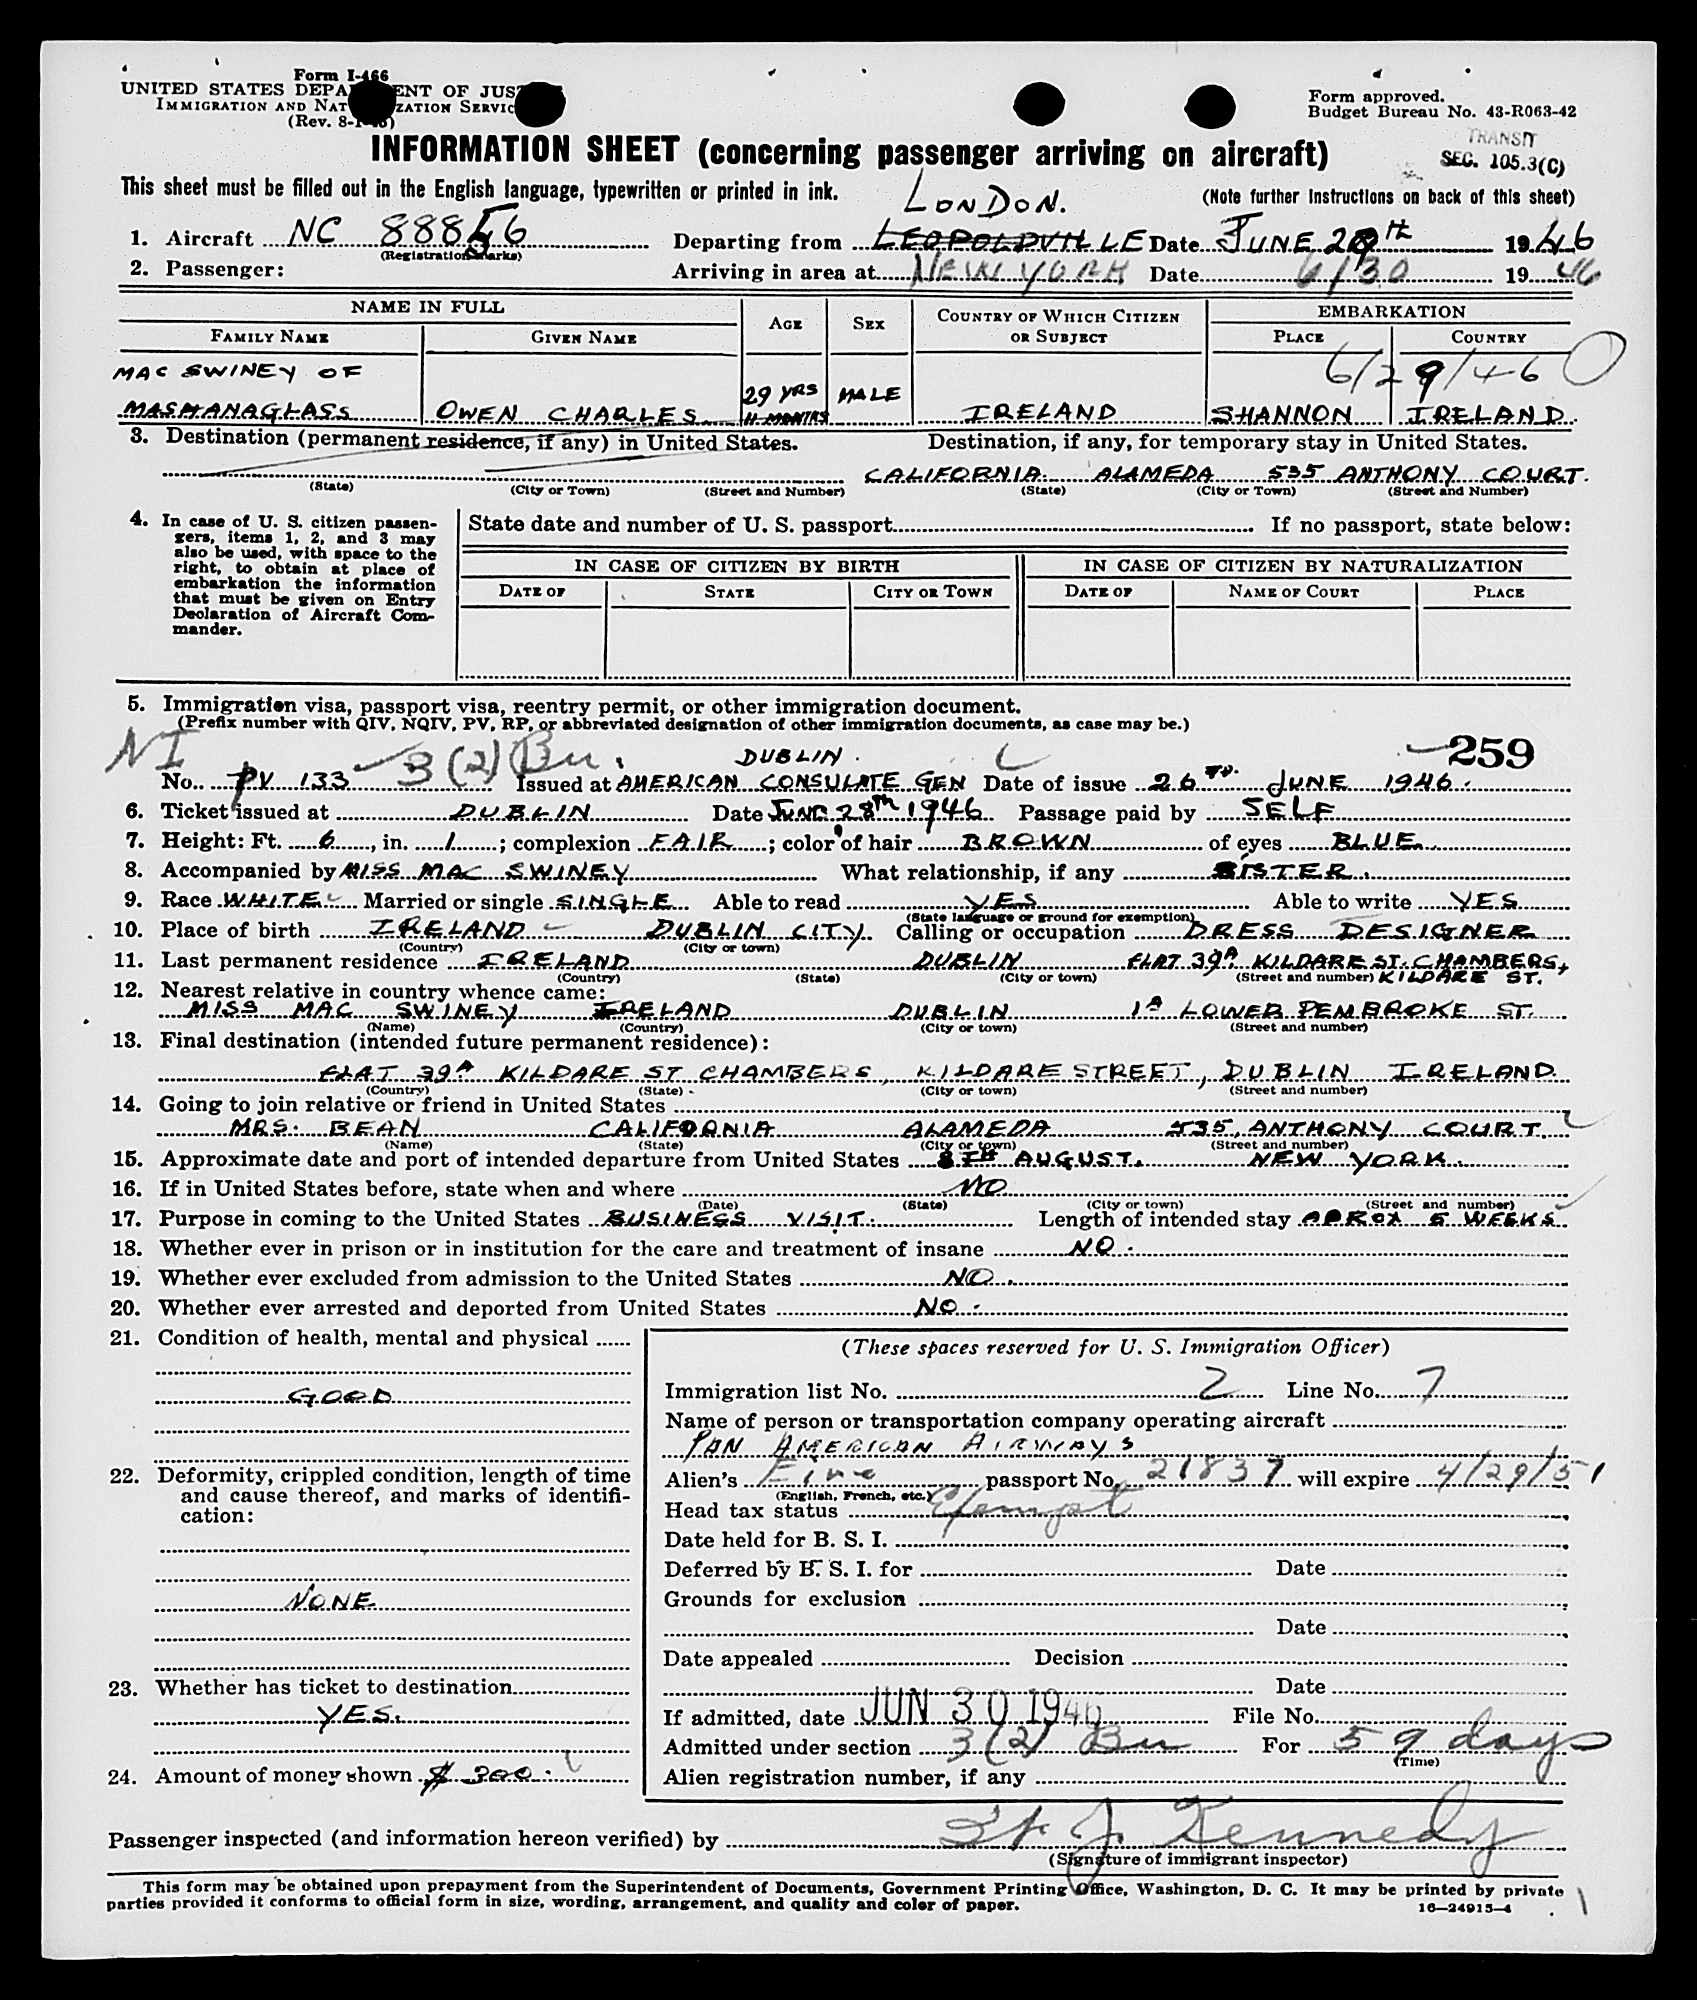 Form I-466
UNITED STATES DEPA ENT OF JUS
IMMIGRATION AND NAT ZATION SERVIC
(Rev. 8-1-45)
Form approved.
Budget Bureau No. 43-R063-42
TRANSIT
SEC. 105.3(C)
INFORMATION SHEET (concerning passenger arriving on aircraft)
This sheet must be filled out in the English language, typewritten or printed in ink.
(Note further instructions on back of this sheet)
LONDON.
1. Aircraft NC 88856 Departing from LEOPOLDVILLE Date JUNE 29th 1946
(Registration marks)
2. Passenger: Arriving in area at NEW YORK Date 6/30 1946
NAME IN FULL
FAMILY NAME GIVEN NAME AGE SEX COUNTRY OF WHICH CITIZEN OR SUBJECT EMBARKATION
PLACE COUNTRY
6/29/46
MAC SWINEY OF
MASHANAGLASS OWEN CHARLES 29 YRS 11 MONTHS MALE IRELAND SHANNON IRELAND
3. Destination (permanent residence, if any) in United States. Destination, if any, for temporary stay in United States.
CALIFORNIA ALAMEDA 535 ANTHONY COURT.
(State) (City or Town) (Street and Number) (State) (City or Town) (Street and Number)
4. In case of U. S. citizen passengers, items 1, 2, and 3 may also be used, with space to the right, to obtain at place of embarkation the information that must be given on Entry Declaration of Aircraft Commander.
State date and number of U. S. passport If no passport, state below:
IN CASE OF CITIZEN BY BIRTH IN CASE OF CITIZEN BY NATURALIZATION
DATE OF STATE CITY OR TOWN DATE OF NAME OF COURT PLACE
5. Immigration visa, passport visa, reentry permit, or other immigration document.
(Prefix number with QIV, NQIV, PV, RP, or abbreviated designation of other immigration documents, as case may be.)
NI 3(2) Bu. DUBLIN. 259
No. PV 133 Issued at AMERICAN CONSULATE GEN Date of issue 26TH. JUNE 1946.
6. Ticket issued at DUBLIN Date JUNE 28th 1946 Passage paid by SELF
7. Height: Ft. 6, in. 1; complexion FAIR; color of hair BROWN of eyes BLUE.
8. Accompanied by MISS MAC SWINEY What relationship, if any SISTER.
9. Race WHITE Married or single SINGLE Able to read YES Able to write YES
(State language or ground for exemption)
10. Place of birth IRELAND DUBLIN CITY Calling or occupation DRESS DESIGNER
(Country) (City or town)
11. Last permanent residence IRELAND DUBLIN FLAT 39A KILDARE ST. CHAMBERS,
(Country) (State) (City or town) (Street and number) KILDARE ST.
12. Nearest relative in country whence came:
MISS MAC SWINEY IRELAND DUBLIN 1A LOWER PEMBROKE ST.
(Name) (Country) (City or town) (Street and number)
13. Final destination (intended future permanent residence):
FLAT 39A KILDARE ST CHAMBERS, KILDARE STREET, DUBLIN IRELAND
(Country) (State) (City or town) (Street and number)
14. Going to join relative or friend in United States
MRS. BEAN CALIFORNIA ALAMEDA 535, ANTHONY COURT.
(Name) (State) (City or town) (Street and number)
15. Approximate date and port of intended departure from United States 8TH AUGUST. NEW YORK.
16. If in United States before, state when and where NO
(Date) (State) (City or town) (Street and number)
17. Purpose in coming to the United States BUSINESS VISIT. Length of intended stay APROX 5 WEEKS
18. Whether ever in prison or in institution for the care and treatment of insane NO.
19. Whether ever excluded from admission to the United States NO.
20. Whether ever arrested and deported from United States NO.
21. Condition of health, mental and physical
GOOD
22. Deformity, crippled condition, length of time and cause thereof, and marks of identification:
NONE
23. Whether has ticket to destination
YES.
24. Amount of money shown $ 300.
(These spaces reserved for U. S. Immigration Officer)
Immigration list No. 2 Line No. 7
Name of person or transportation company operating aircraft
PAN AMERICAN AIRWAYS
Alien's Eire passport No. 21837 will expire 4/29/51
(English, French, etc.)
Head tax status Exempt
Date held for B. S. I.
Deferred by B. S. I. for Date
Grounds for exclusion
Date
Date appealed Decision
Date
If admitted, date JUN 30 1946 File No.
Admitted under section 3(2) Bu For 59 days
(Time)
Alien registration number, if any
Passenger inspected (and information hereon verified) by J. Kennedy
(Signature of immigrant inspector)
This form may be obtained upon prepayment from the Superintendent of Documents, Government Printing Office, Washington, D. C. It may be printed by private
parties provided it conforms to official form in size, wording, arrangement, and quality and color of paper.
16—24915-4